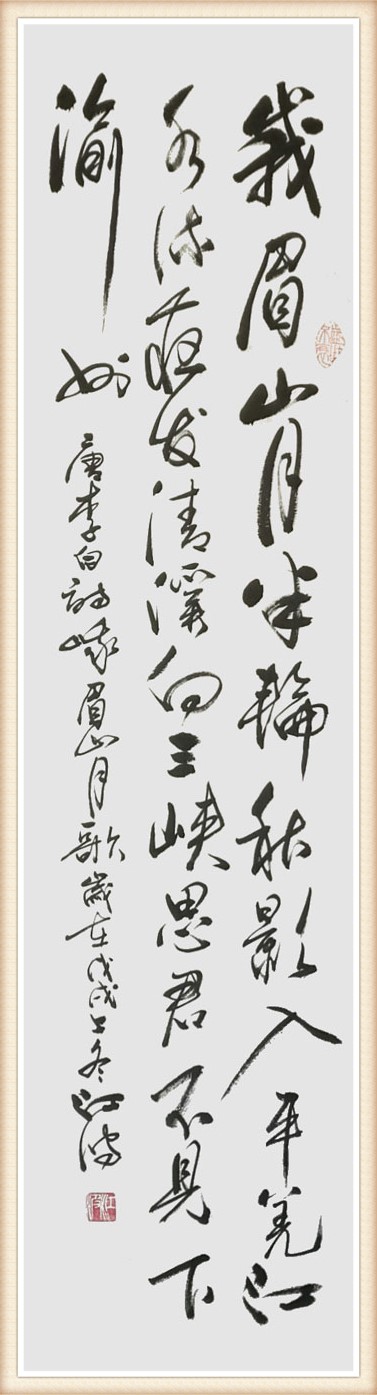 峨眉山月半輪秋影入平羌江
水流夜发清溪向三峽思君不見下
渝州
唐李白詩峨眉山月歌歲在戊戌之冬江鴻